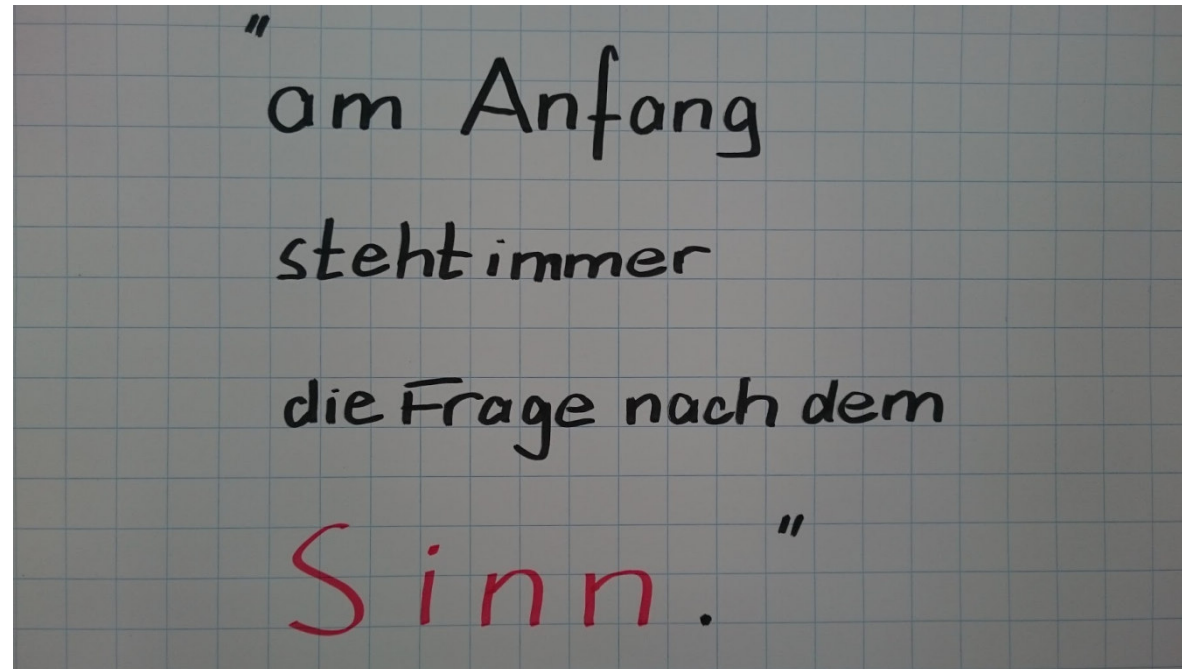 "am Anfang
steht immer
die Frage nach dem
Sinn."